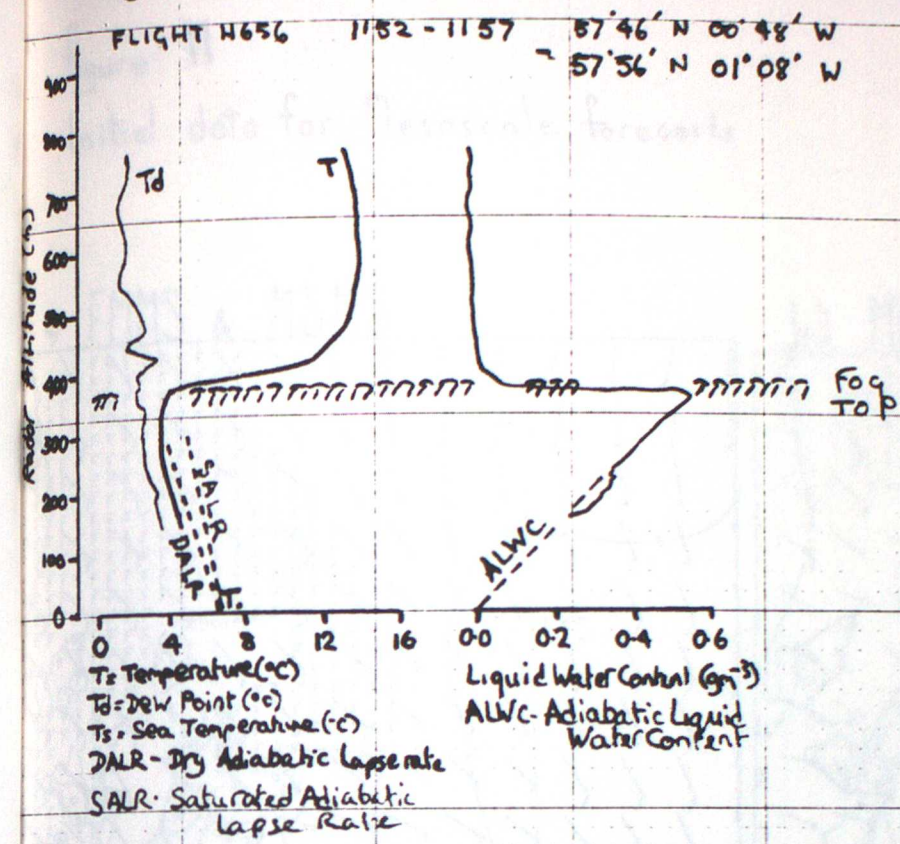 FLIGHT H656 1152 - 1157 57°46' N 00°48' W
~ 57°56' N 01°08' W
Initial data for Mesoscale forecasts
900
800
700
600
500
400
300
200
100
0
Radar Altitude (m)
Td
T
Fog
Top
SALR
DALR
Ts
ALWC
0 4 8 12 16
0.0 0.2 0.4 0.6
T= Temperature (°C)
Td= Dew Point (°C)
Ts= Sea Temperature (°C)
DALR - Dry Adiabatic Lapse rate
SALR - Saturated Adiabatic
Lapse Rate
Liquid Water Content (gm⁻³)
ALWC - Adiabatic Liquid
Water Content